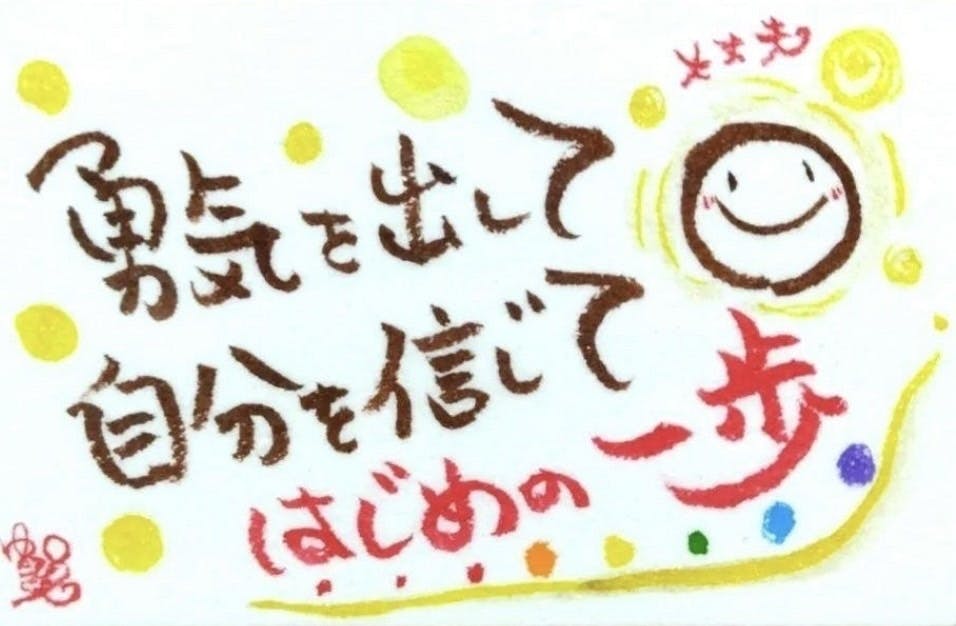 勇気を出して
自分を信じて
はじめの一歩